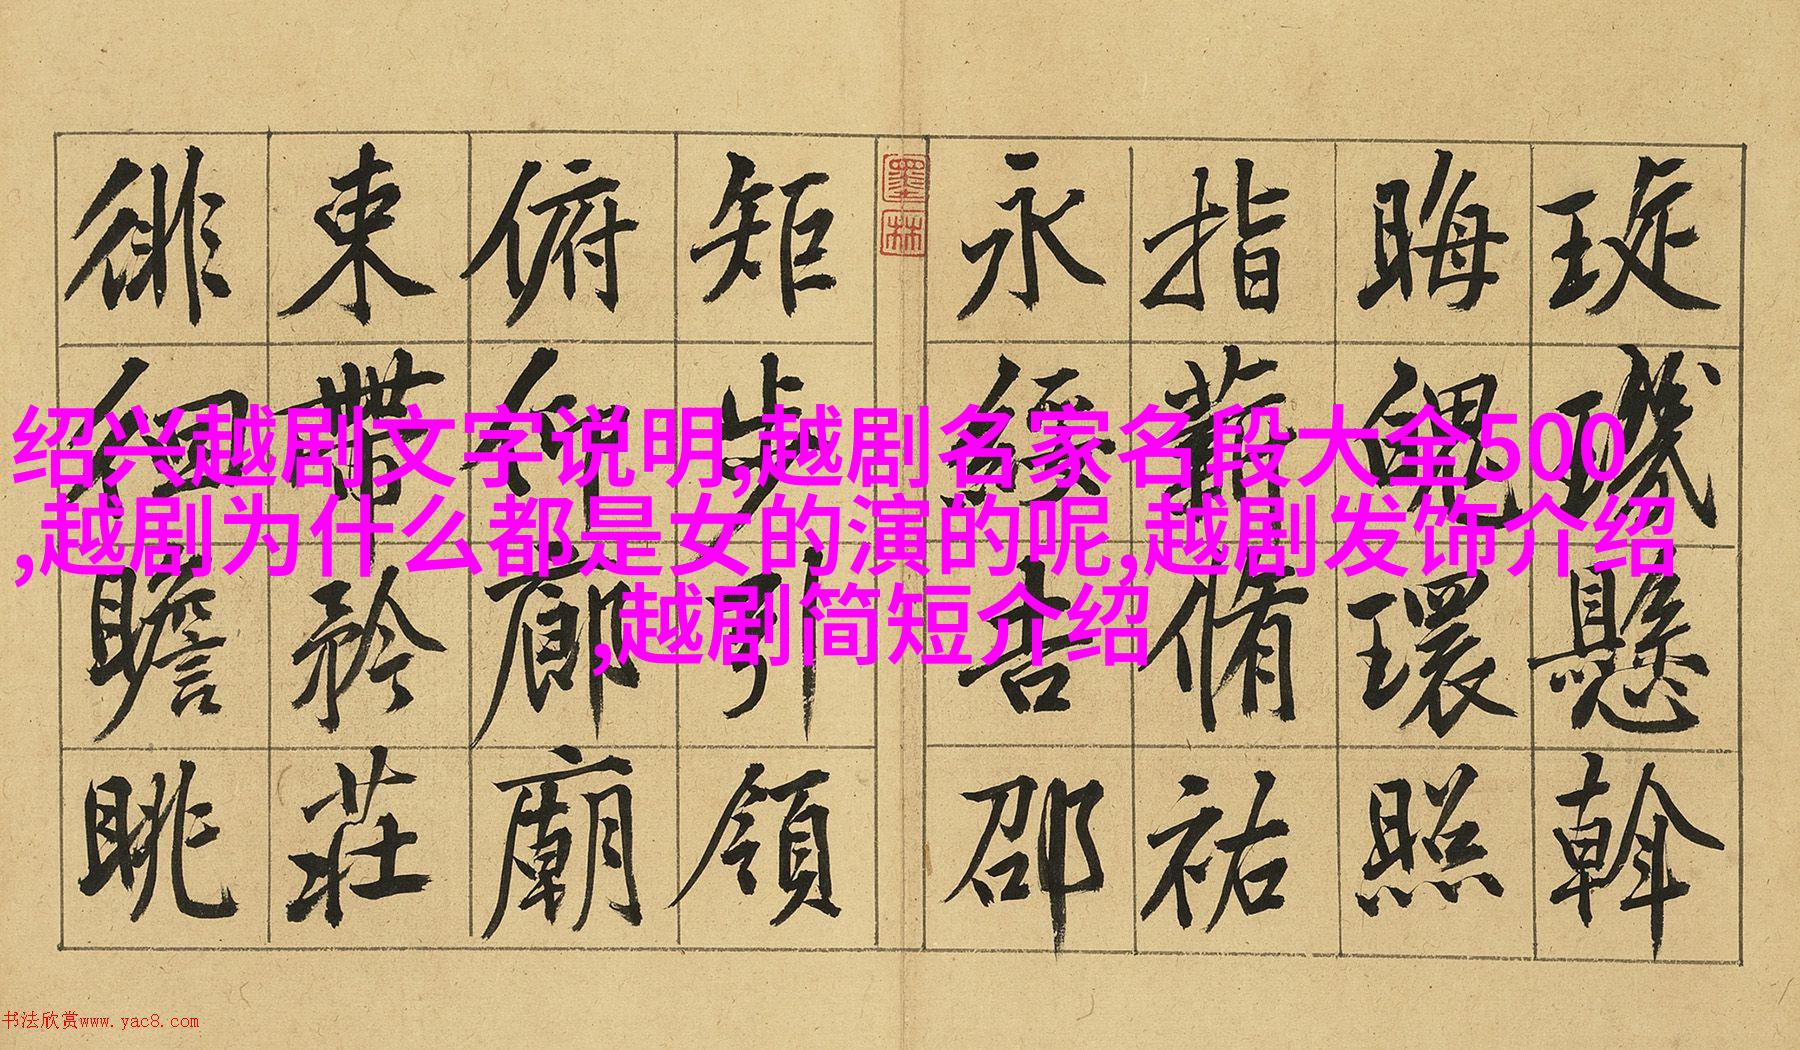 琁璣懸斡
晦魄環照
指薪脩祐
永綏吉邵
墨林
矩步引領
俯仰廊廟
束帶矜莊
徘徊瞻眺
绍兴越剧文字说明,越剧名家名段大全500
,越剧为什么都是女的演的呢,越剧发饰介绍
,越剧简短介绍
书法欣赏www.yac8.com